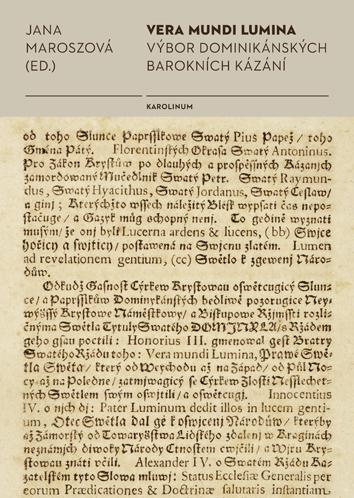 JANA
MAROSZOVÁ
(ED.)
VERA MUNDI LUMINA
VÝBOR DOMINIKÁNSKÝCH
BAROKNÍCH KÁZÁNÍ
KAROLINUM
od toho Slunce Paprsslkowe Swatý Pius Papež / toho
Gména Pátý. Florentinských Okrasa Swatý Antoninus.
Pro Zákon Krystůw po dlauhých a prospěssných Kázanjch
zamordowaný Mučedlnik Swatý Petr. Swatý Raymun-
dus, Swatý Hyacinthus, Swatý Jordanus, Swatý Ceslaw/
a ginj ; Kterýchžto wssech náležitý Bleſk wypsati čas nepo-
ſtačuge / a Gazyk můg schopný nenj. To gedině wyznati
musým/ že onj byli Lucerna ardens & lucens, (bb) Swjce
hořicý a swjticý/ poſtawená na Swjcnu zlatém. Lumen
ad revelationem gentium, (cc) Swětlo k zgewenj Náro-
důw.
Odkudž Gaſnoſt Cýrkew Kryſtowau oswětcugicý Slun-
ce/ a Paprſſlků Dominykánſkých bedliwě pozorugice Ney-
wýſſý Kryſtowe Náměſtkowy/ a Biſkupowe Ržjmſſtí rozli-
čnýma Swětla Tytuly Swatého DOMINIKA/ s Ržádem
geho gſau poctili : Honorius III. gmenowal geſt Bratry
Swatého Ržádu toho: Vera mundi Lumina, Prawé Swě-
tla Swěta/ který od Weychodu až na Západ/ od Půl No-
cy až na Poledne/
Swětlem ſwým oſwjtili / a oſwětcugj. Innocentius
IV. o njch dj: Pater Luminum dedit illos in lucem genti-
um, Otec Swětla dal gé k oſwjcenj Národůw/ kteryby
až Zámorſký od Towaryſſtwa Lidſkého zdalenj w Kraginách
neznámých diwoky Národy Ctnoſtem cwjčili / a Wjru Kry-
ſtowau znáti včili. Alexander IV. o Swatém Ržádu Ka-
zatelſkém tyto Slowa mluwj: Status Ecclesiæ Generalis per
eorum Prædicationes & Doctrinæ salutaris instantiam.